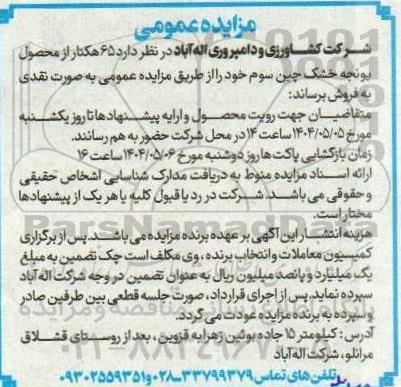 مزایده عمومی
شرکت کشاورزی و دامپروری اله آباد در نظر دارد ۶۵ هکتار از محصول
یونجه خشک چین سوم خود را از طریق مزایده عمومی به صورت نقدی
به فروش برساند:
متقاضیان جهت رویت محصول و ارایه پیشنهادها تا روز یکشنبه
مورخ ۱۴۰۴/۰۵/۰۵ ساعت ۱۴ در محل شرکت حضور به هم رسانند.
زمان بازگشایی پاکت ها روز دوشنبه مورخ ۱۴۰۴/۰۵/۰۶ ساعت ۱۶
ارائه اسناد مزایده منوط به دریافت مدارک شناسایی اشخاص حقیقی
و حقوقی می باشد. شرکت در رد یا قبول کلیه یا هر یک از پیشنهادها
مختار است.
هزینه انتشار این آگهی بر عهده برنده مزایده می باشد. پس از برگزاری
کمیسیون معاملات و انتخاب برنده، وی مکلف است چک تضمین به مبلغ
یک میلیارد و پانصد میلیون ریال به عنوان تضمین در وجه شرکت اله آباد
سپرده نماید. پس از اجرای قرارداد، صورت جلسه قطعی بین طرفین صادر
و سپرده به برنده مزایده عودت می گردد.
آدرس: کیلومتر ۱۵ جاده بوئین زهرا به قزوین، بعد از روستای قشلاق
مرانلو، شرکت اله آباد
تلفن های تماس ۳۳۷۹۹۳۷۹-۰۲۸ و ۰۹۳۰۲۵۵۹۳۵۱